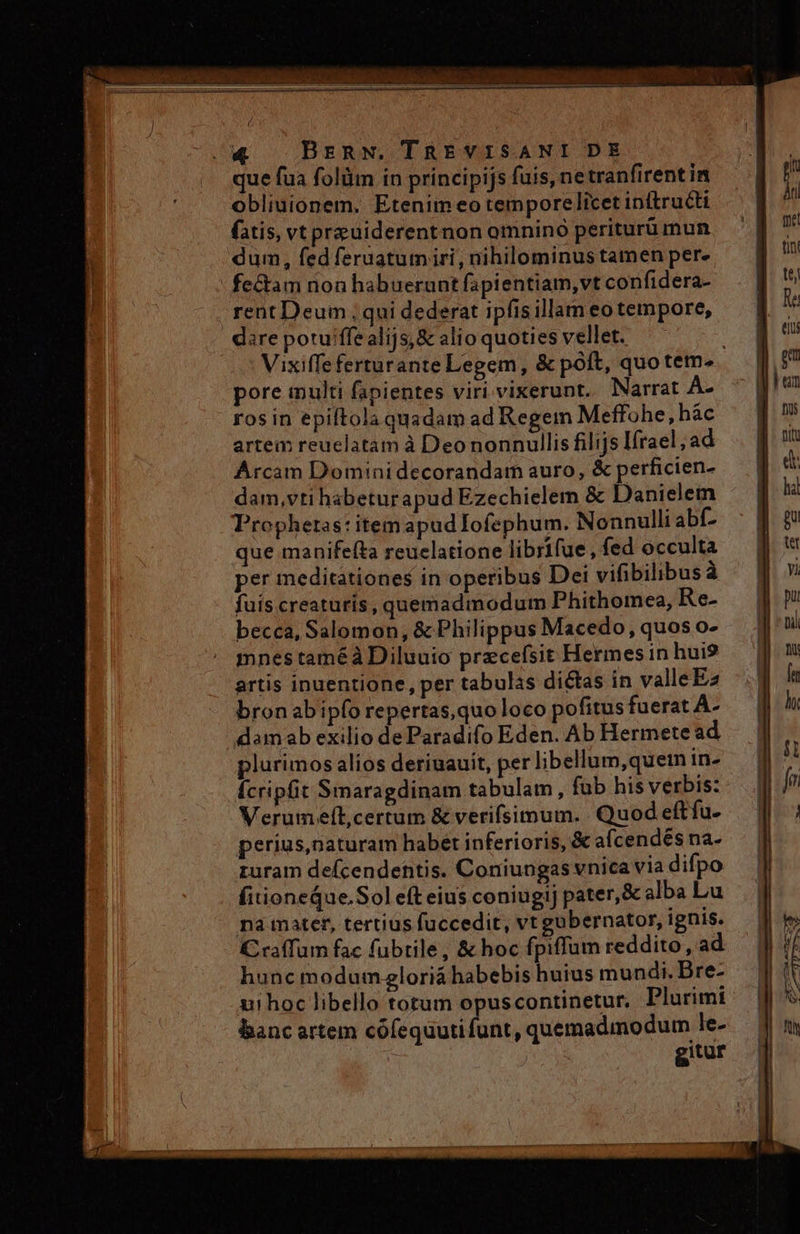 4 BERN. TREVISANI DE
que ſua ſolùm in principijs ſuis, ne tranſirent in
obliuionem. Etenim eo tempore licet inſtructi
fatis, vt præuiderent non omninò periturū mun
dum, ſed ſeruatum iri, nihilominus tamen per-
fectam non habuerunt ſapientiam, vt conſidera-
rent Deum, qui dederat ipſis illam eo tempore,
dare potuiſſe alijs, & alio quoties vellet.
Vixiſſe fertur ante Legem, & pòſt, quo tem-
pore multi ſapientes viri vixerunt. Narrat A-
ros in epiſtola quadam ad Regem Meſſohe, hác
artem reuelatam à Deo nonnullis filijs Iſrael, ad
Arcam Domini decorandam auro, & perficien-
dam, vti habetur apud Ezechielem & Danielem
Prophetas: item apud Ioſephum. Nonnulli abſ-
que manifeſta reuelatione libriſue, ſed occulta
per meditationes in operibus Dei viſibilibus à
ſuis creaturis, quemadmodum Phithomea, Re-
becca, Salomon, & Philippus Macedo, quos o-
mnes tamé à Diluuio præceſsit Hermes in huiꝰ
artis inuentione, per tabulas dictas in valle Eɀ
bron ab ipſo repertas, quo loco poſitus fuerat A-
dam ab exilio de Paradiſo Eden. Ab Hermete ad
plurimos alios deriuauit, per libellum, quem in-
ſcripſit Smaragdinam tabulam, ſub his verbis:
Verum eſt, certum & veriſsimum. Quod eſt ſu-
perius, naturam habet inferioris, & aſcendés na-
turam deſcendentis. Coniungas vnica via diſpo
ſitioneq́ue. Sol eſt eius coniugij pater, & alba Lu
na mater, tertius ſuccedit, vt gubernator, ignis.
Craſſum fac ſubtile, & hoc ſpiſſum reddito, ad
hunc modum gloriá habebis huius mundi. Bre-
ui hoc libello totum opus continetur. Plurimi
hanc artem cóſequuti ſunt, quemadmodum le-
gitur